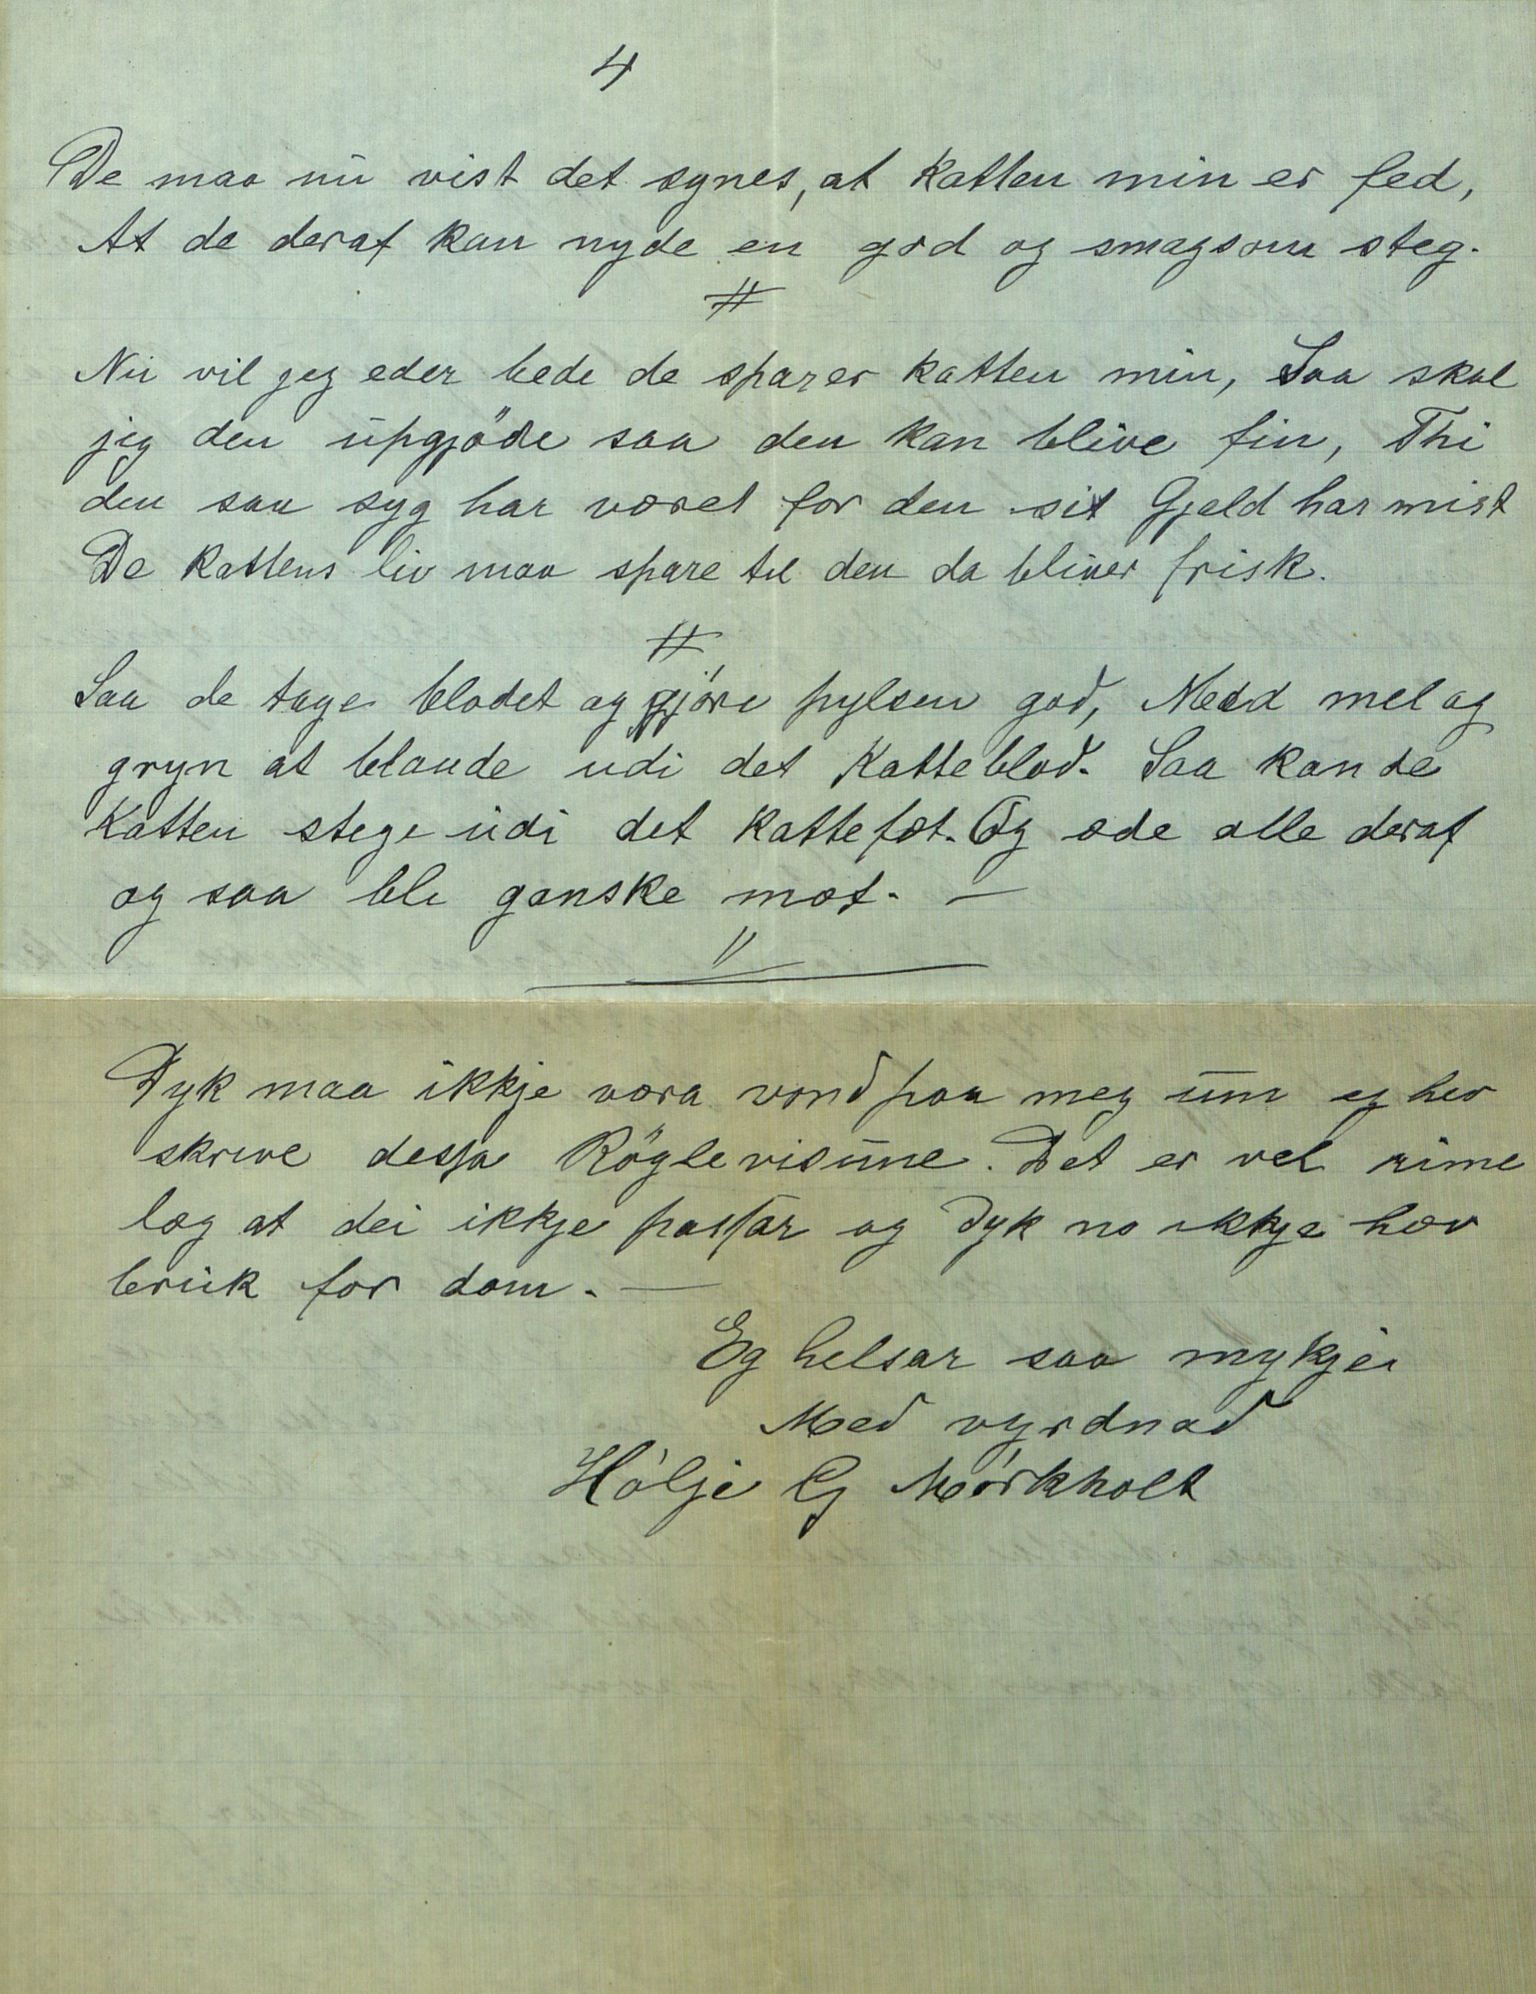 4
De maa nu vist det synes, at katten min er fed,
At de deraf kan nyde en god og smagsom steg.
#
Nu vil jeg eder bede de sparer katten min, Saa skal
jeg den upgjöde saa den kan blive fin, Thi
den saa syg har været for den sit Gjeld har mist
De kattens liv maa spare til den da bliver frisk.
#
Saa de tage blodet og gjøre pylsen god, Medd mel og
gryn at blande udi det Katteblod. Saa kan de
Katten stege udi det kattefæt. Og æde alle deraf
og saa ble ganske mæt. —
Dyk maa ikkje væra vond paa meg um eg hev
skreve dessa Röglevisune. Det er vel rime
læg at dei ikkje passar og dyk no ikkje hev
bruk for dom. —
Eg helsar saa mykje
Med vyrdnad
Hölje G Mörkholt